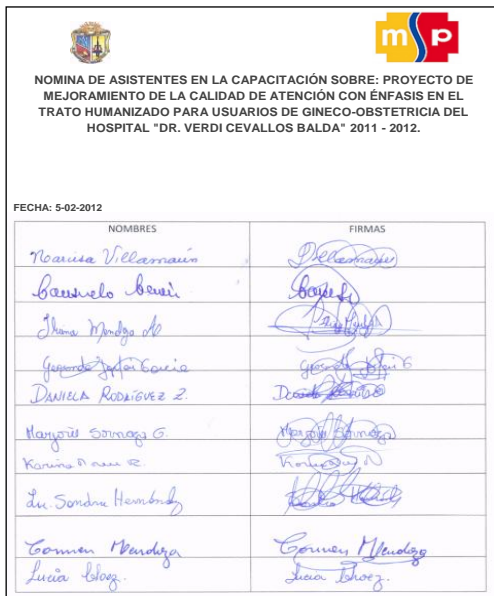 msp
NOMINA DE ASISTENTES EN LA CAPACITACIÓN SOBRE: PROYECTO DE
MEJORAMIENTO DE LA CALIDAD DE ATENCIÓN CON ÉNFASIS EN EL
TRATO HUMANIZADO PARA USUARIOS DE GINECO-OBSTETRICIA DEL
HOSPITAL "DR. VERDI CEVALLOS BALDA" 2011 - 2012.
FECHA: 5-02-2012
NOMBRES FIRMAS
Narcisa Villamarín
Consuelo
Mendoza
García
DANIELA RODRÍGUEZ Z.
Marjorie Sornoza G. Marjorie Sornoza
Karina
Lic. Sandra Hernández
Carmen Mendoza Carmen Mendoza
Lucía Choez. Lucía Choez.